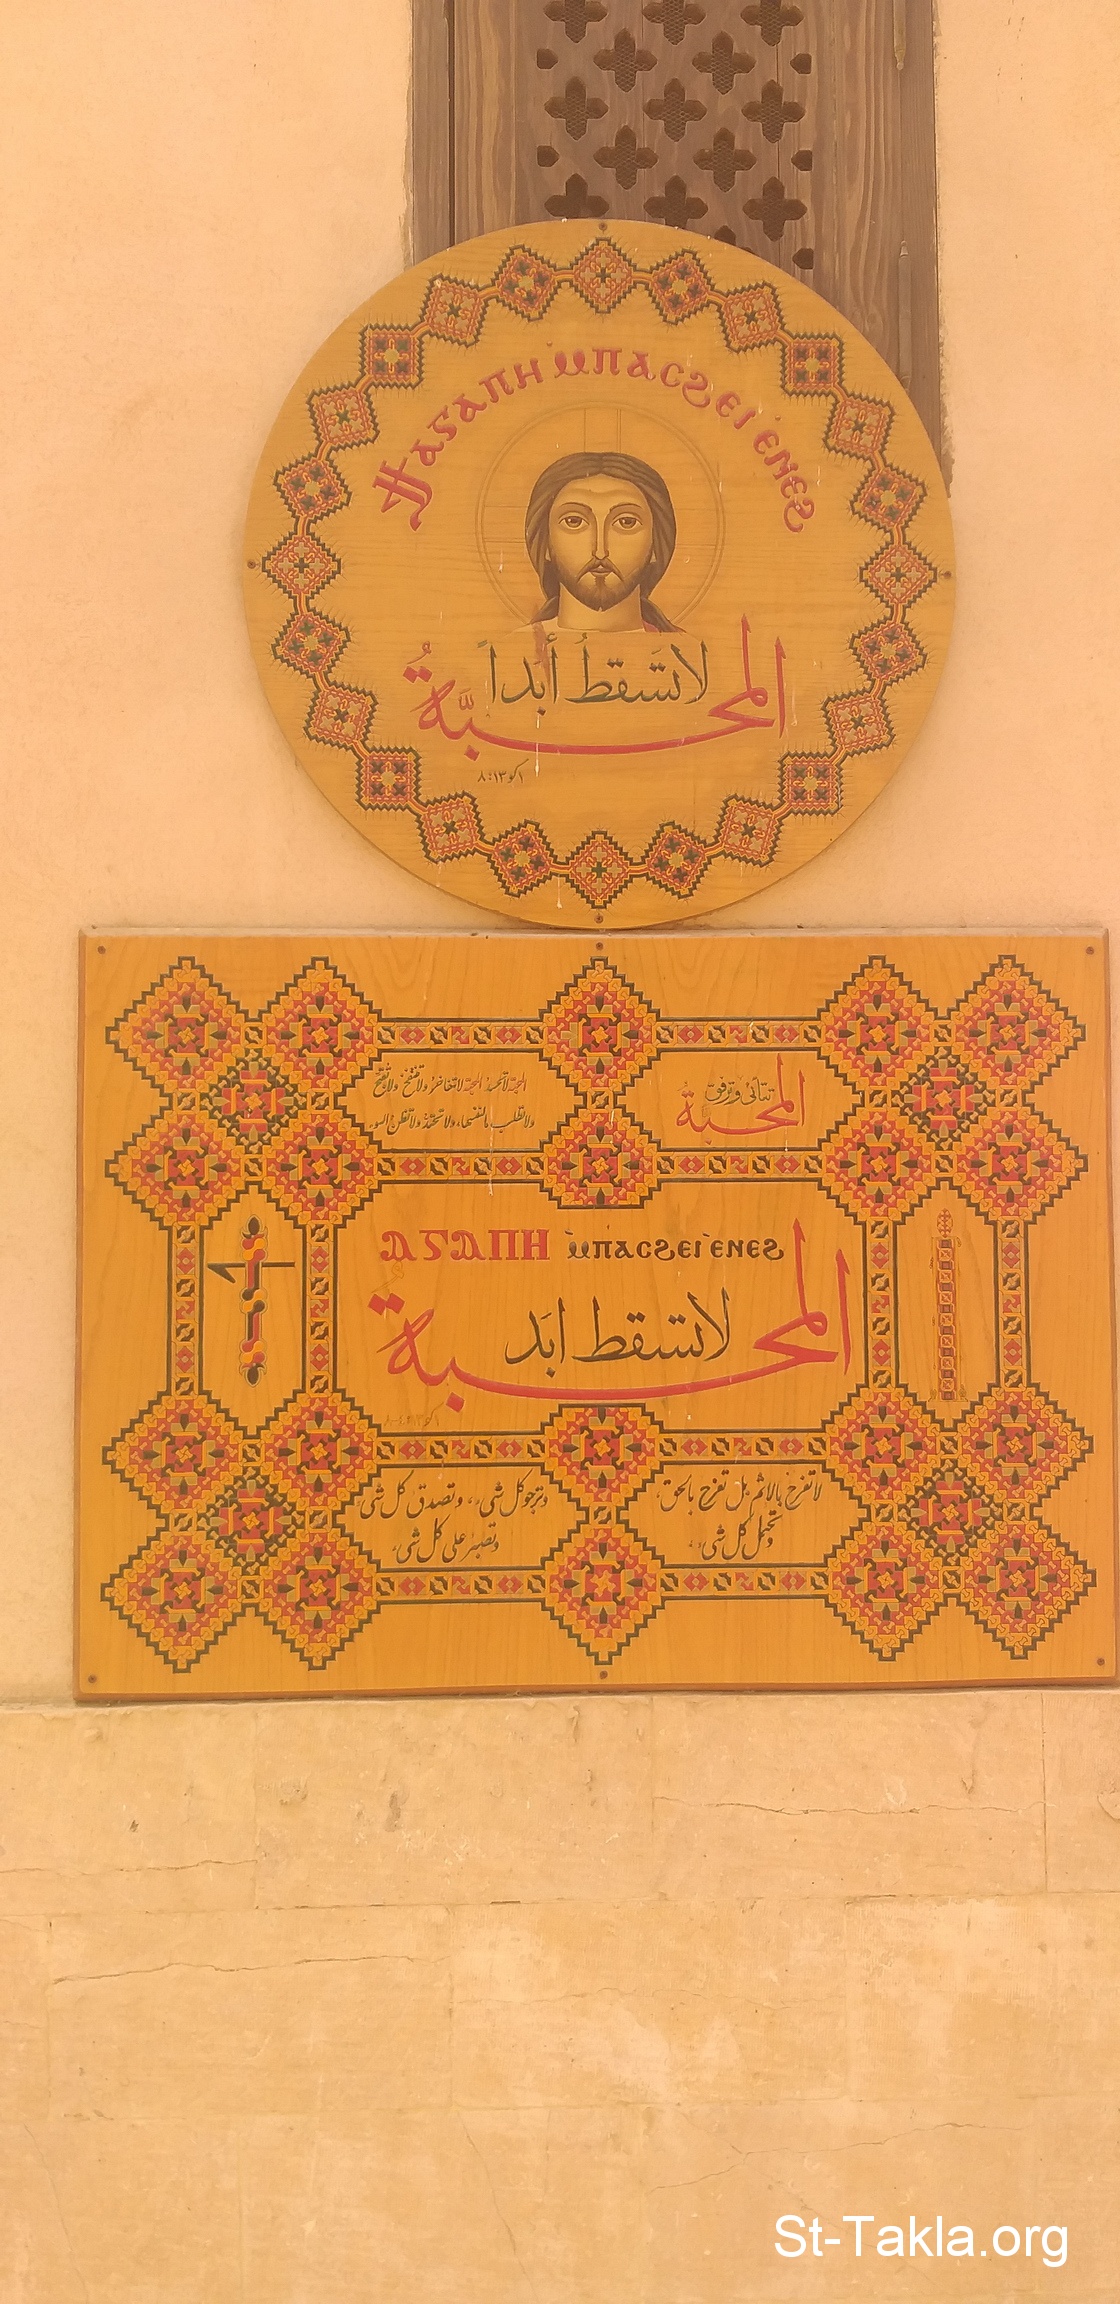 Ϯⲁⲅⲁⲡⲏ ⲙ̀ⲡⲁⲥϩⲉⲓ ⲉ̀ⲛⲉϩ
المحبَّةُ لا تَسقطُ أبَداً
١كو١٣: ٨
المحبةُ تتأنى وترفق
المحبة لا تحسد المحبة لا تتفاخر ولا تنتفخ ولا تقبح
ولا تطلب ما لنفسها، ولا تحتدّ ولا تظن السوء
ⲁⲅⲁⲡⲏ ⲙ̀ⲡⲁⲥϩⲉⲓ ⲉⲛⲉϩ
المحبة لا تسقط ابَد
لا تفرح بالاثم بل تفرح بالحق،
وتحتمل كل شيء،
وترجو كل شيء، وتصدق كل شيء
وتصبر على كل شيء
St-Takla.org